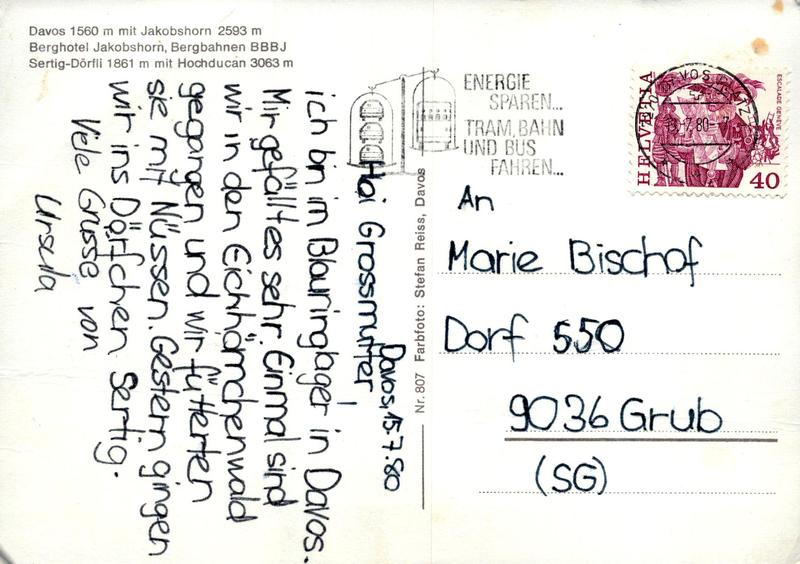 Davos 1560 m mit Jakobshorn 2593 m
Berghotel Jakobshorn, Bergbahnen BBBJ
Sertig-Dörfli 1861 m mit Hochducan 3063 m
Davos, 15.7.80
Hai Grossmutter
ich bin im Blauringlager in Davos.
Mir gefällt es sehr. Einmal sind
wir in den Eichhörnchenwald
gegangen und wir fütterten
sie mit Nüssen. Gestern gingen
wir ins Dörfchen Sertig.
Viele Grüsse von
Ursula
Nr. 807 Farbfoto: Stefan Reiss, Davos
ENERGIE
SPAREN...
TRAM, BAHN
UND BUS
FAHREN...
HELVETIA
ESCALADE GENÈVE
40
DAVOS PLATZ
7.80
An
Marie Bischof
Dorf 550
9036 Grub
(SG)